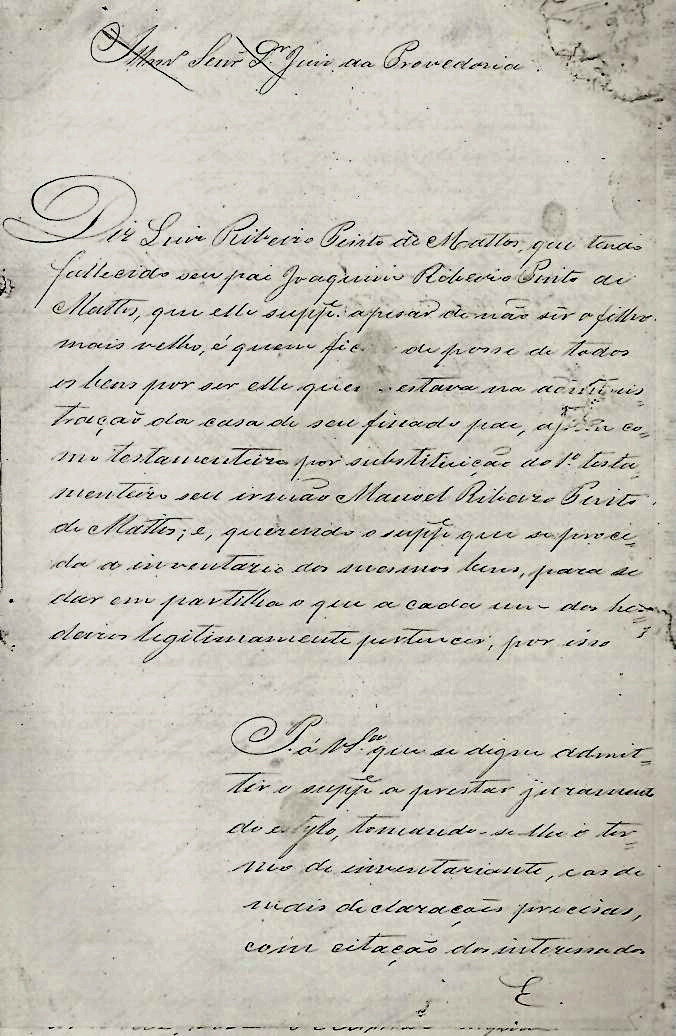 Illmº Senr. Dr. Juiz da Provedoria
Diz Luiz Ribeiro Pinto de Mattos, que tendo
fallecido seu pai Joaquim Ribeiro Pinto de
Mattos, que elle suppe. apesar de não ser o filho
mais velho, é quem fic de posse de todos
os bens por ser elle quem estava na adminis-
tração da casa de seu finado pae, co-
mo testamenteiro por substituição do 1º testa-
menteiro seu irmão Manoel Ribeiro Pinto
de Mattos; e, querendo o suppe que se proce-
da a inventario dos mesmos bens, para se
dar em partilha o que a cada um dos her-
deiros legitimamente pertencer, por isso
P. á V. Sª. que se digne admit-
tir o suppe a prestar juramento
do estylo, tomando-se lhe o ter-
mo de inventariante, e as de
mais declarações precisas,
com citação dos interessados
E.